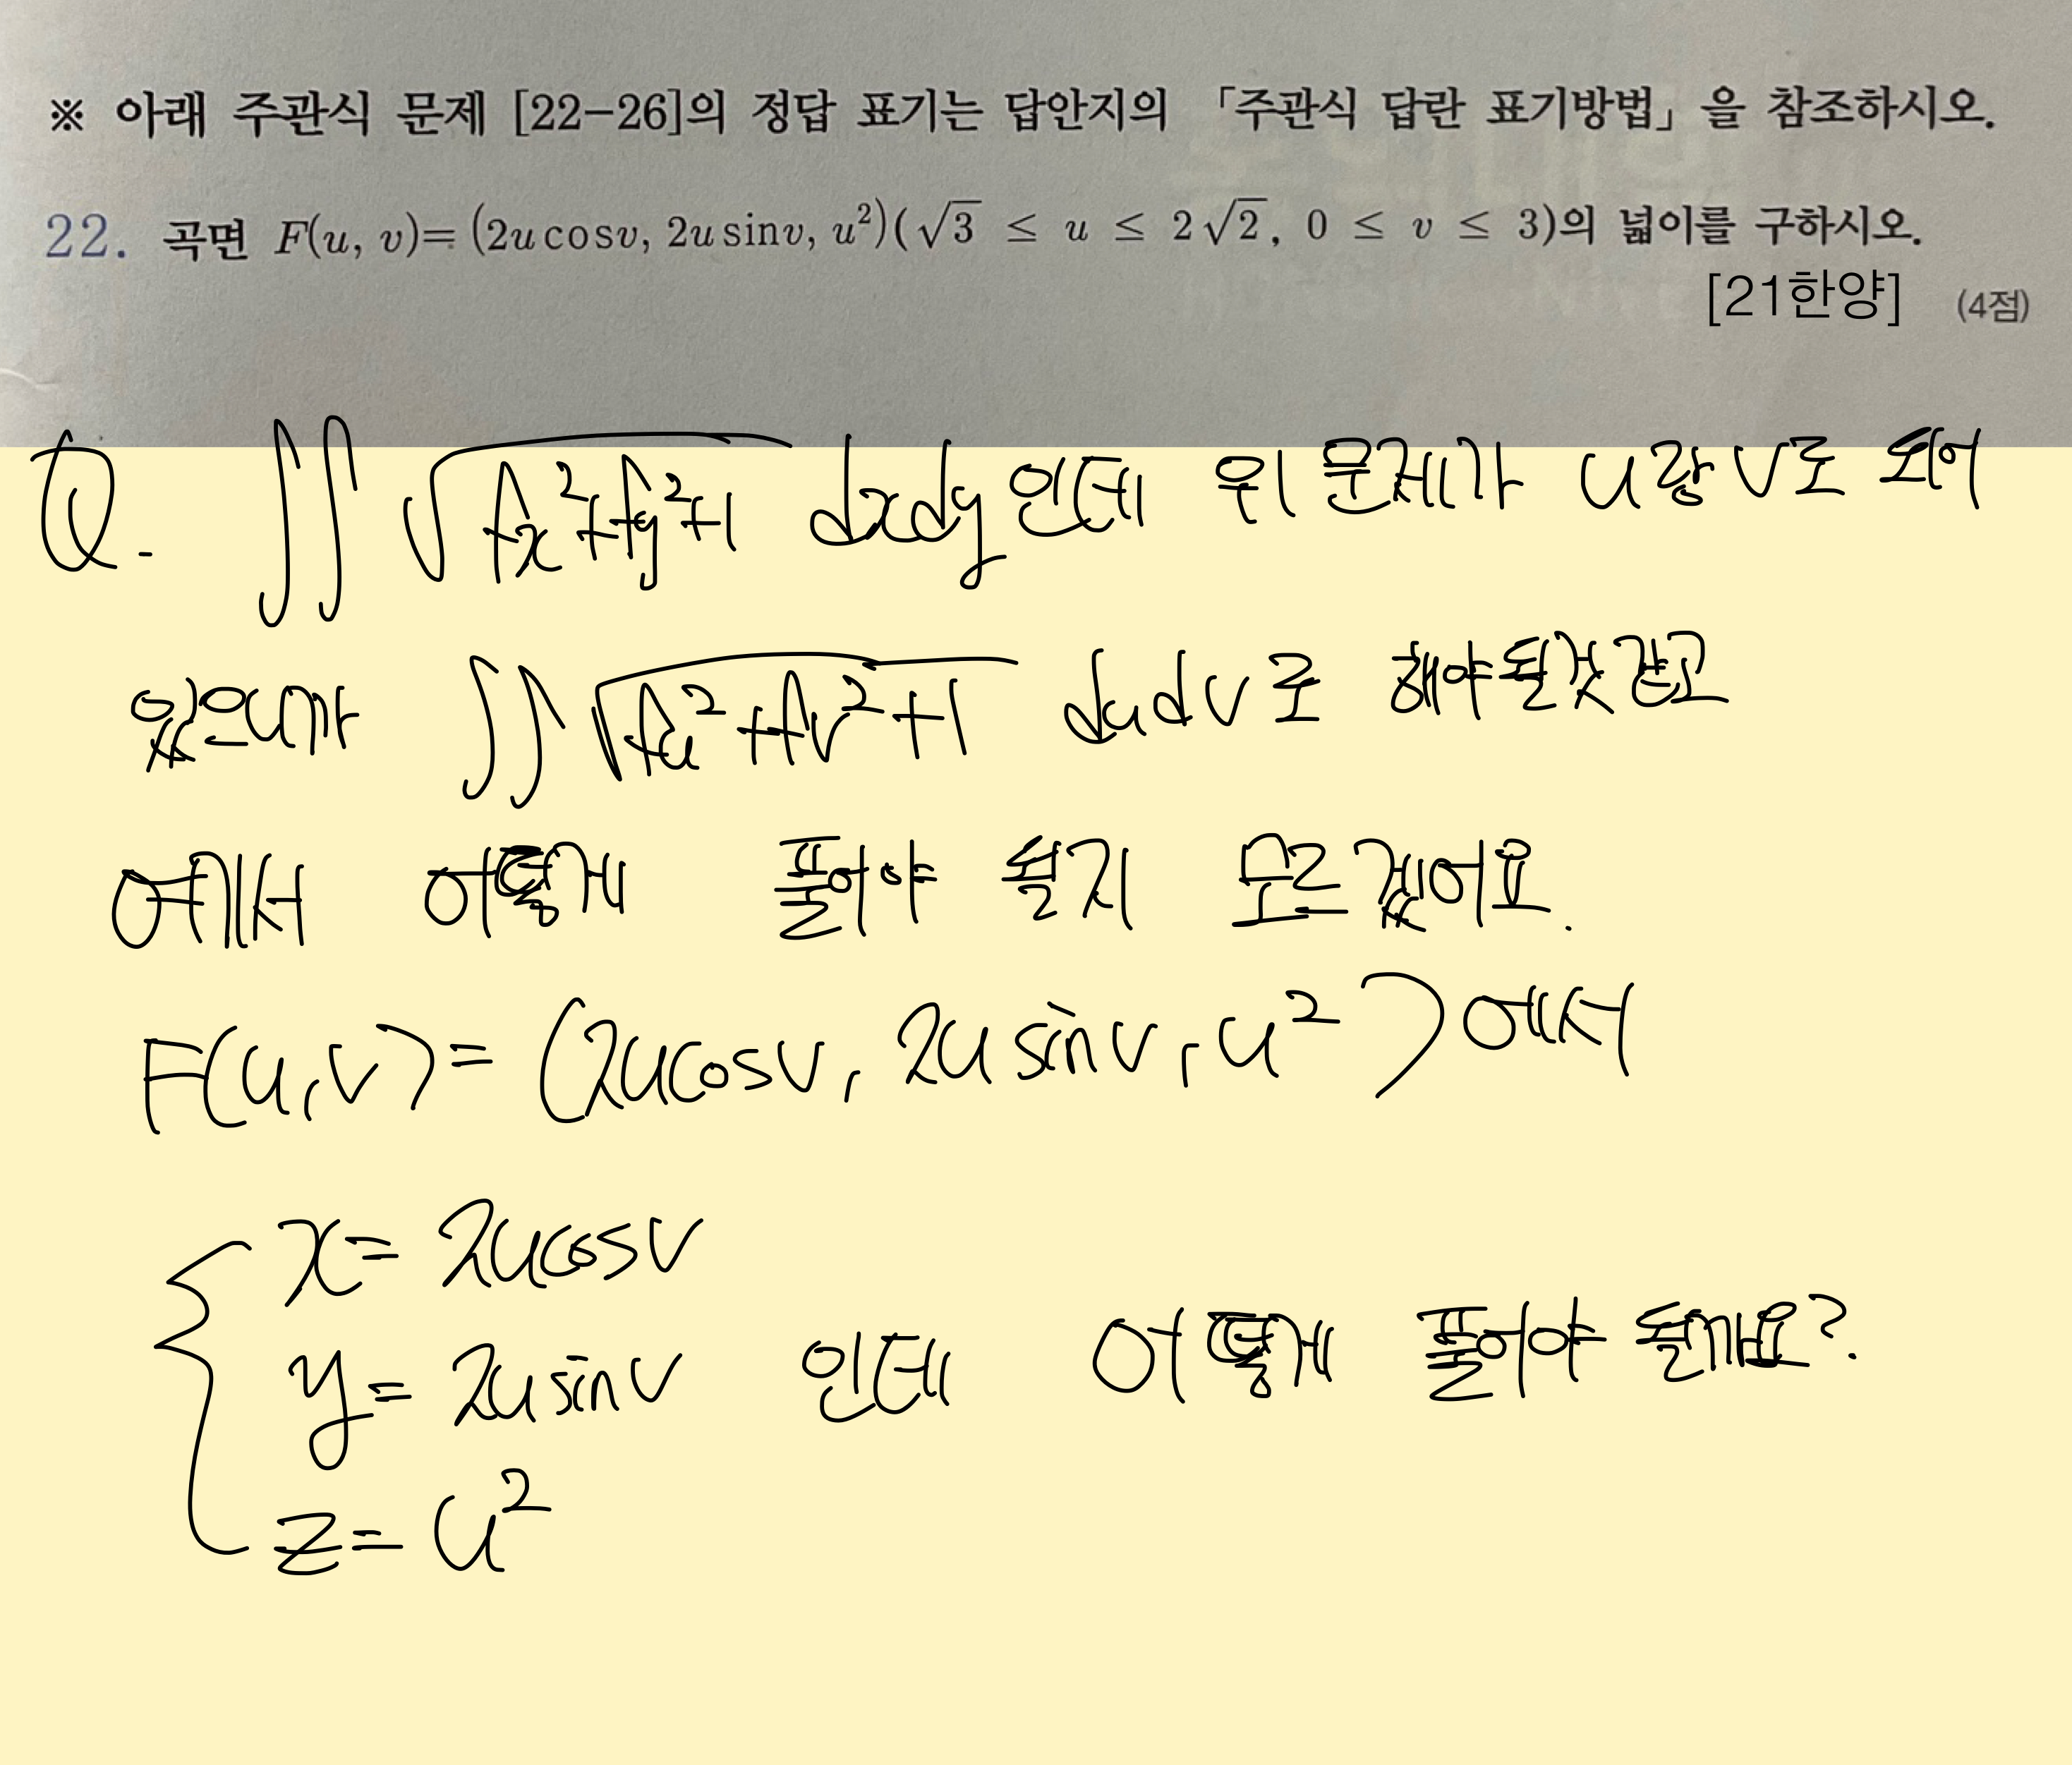 ※ 아래 주관식 문제 [22-26]의 정답 표기는 답안지의 「주관식 답란 표기방법」을 참조하시오.
22. 곡면 F(u, v)= (2u cosv, 2u sinv, u²)(√3 ≤ u ≤ 2√2, 0 ≤ v ≤ 3)의 넓이를 구하시오.
[21한양] (4점)
Q. ∬ √(fx²+fy²+1) dxdy 인데 위 문제가 u랑 v로 되어
있으니까 ∬ √(fu²+fv²+1) dudv로 해야될것 같고
여기서 어떻게 풀어야 될지 모르겠어요.
F(u,v)= (2ucosv, 2u sinv, u²)에서
x= 2ucosv
y= 2u sinv 인데 어떻게 풀어야 될까요?
z= u²